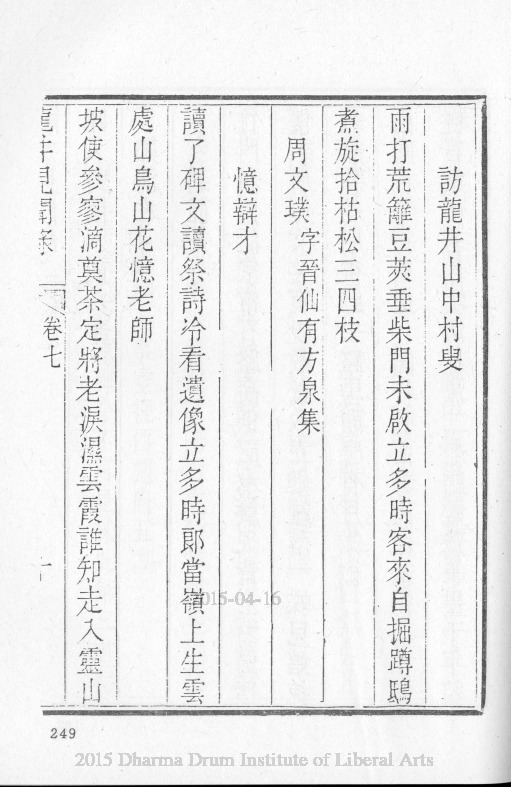 訪龍井山中村叟
雨打荒籬豆莢垂柴門未啟立多時客來自掘蹲鴟
煮旋拾枯松三四枝
周文璞字晉仙有方泉集
憶辯才
讀了碑文讀祭詩冷看遺像立多時郎當嶺上生雲
處山鳥山花憶老師
坡使參寥滴奠茶定將老淚濕雲霞誰知走入靈山
龍井見聞錄
卷七
十
249
2015-04-16
2015 Dharma Drum Institute of Liberal Arts